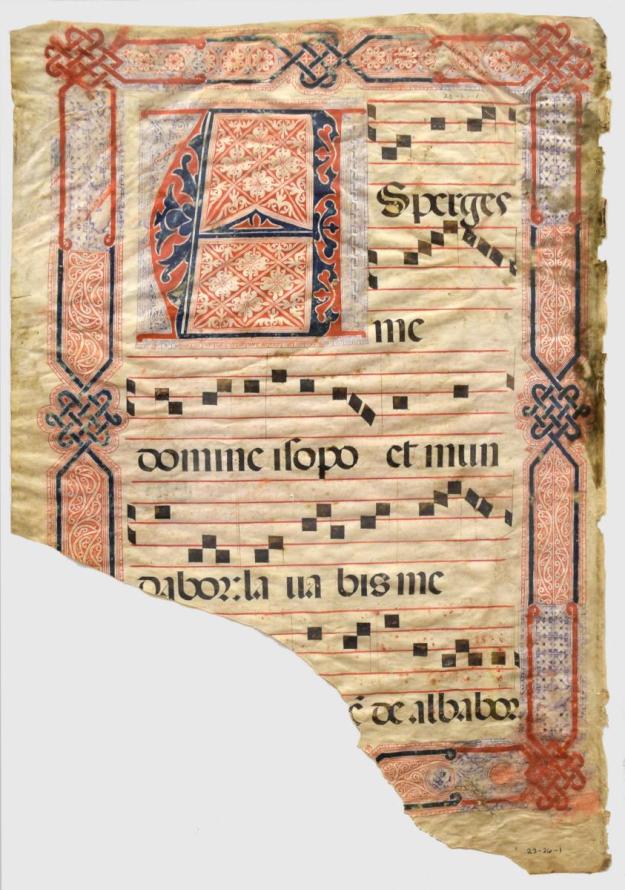 A
Sperges
me
domine isopo et mun
dabor: la ua bis me
de albabor
22-26-1